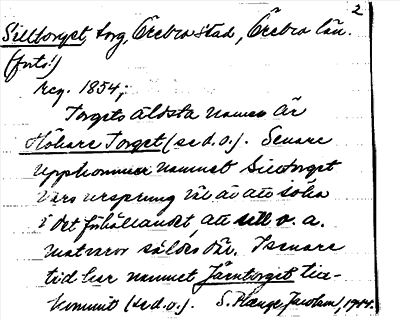 2
Silltorget, torg, Örebro stad, Örebro län.
(forts!)
reg. 1854;
Torgets äldsta namn är
Hökare Torget (se d.o.). Senare
uppkommer namnet Silltorget
vars ursprung väl är att söka
i det förhållandet, att sill o. a.
matvaror såldes där. I senare
tid har namnet Järntorget till-
kommit (se d.o.). S. 1944.